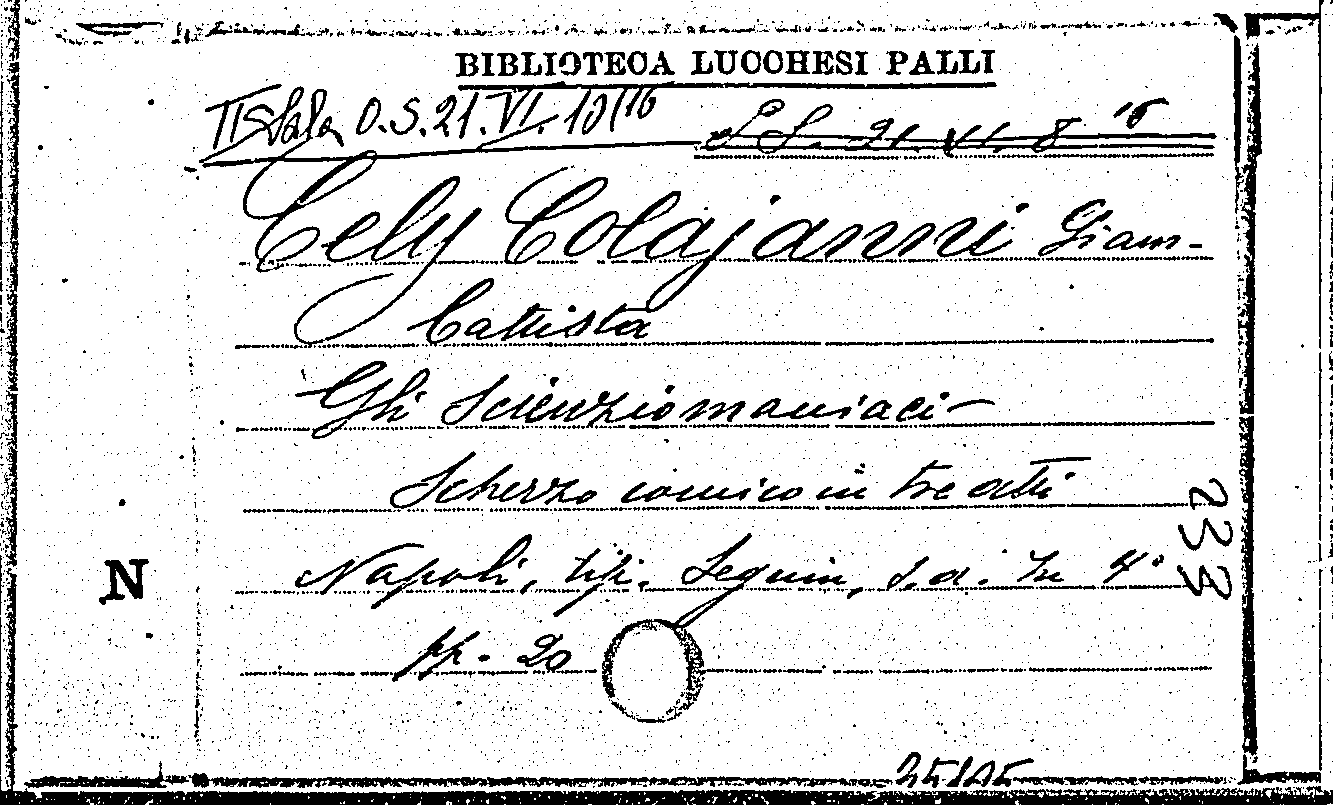 BIBLIOTECA LUCCHESI PALLI
II Sala O.S.21.VI.10/16 S. 21. VI. 8 16
Cely Colajanni Giam-
battista
Gli Scienziomaniaci-
Scherzo comico in tre atti
Napoli, tip. Seguin, s.d. In 4°
pp. 20
233
N